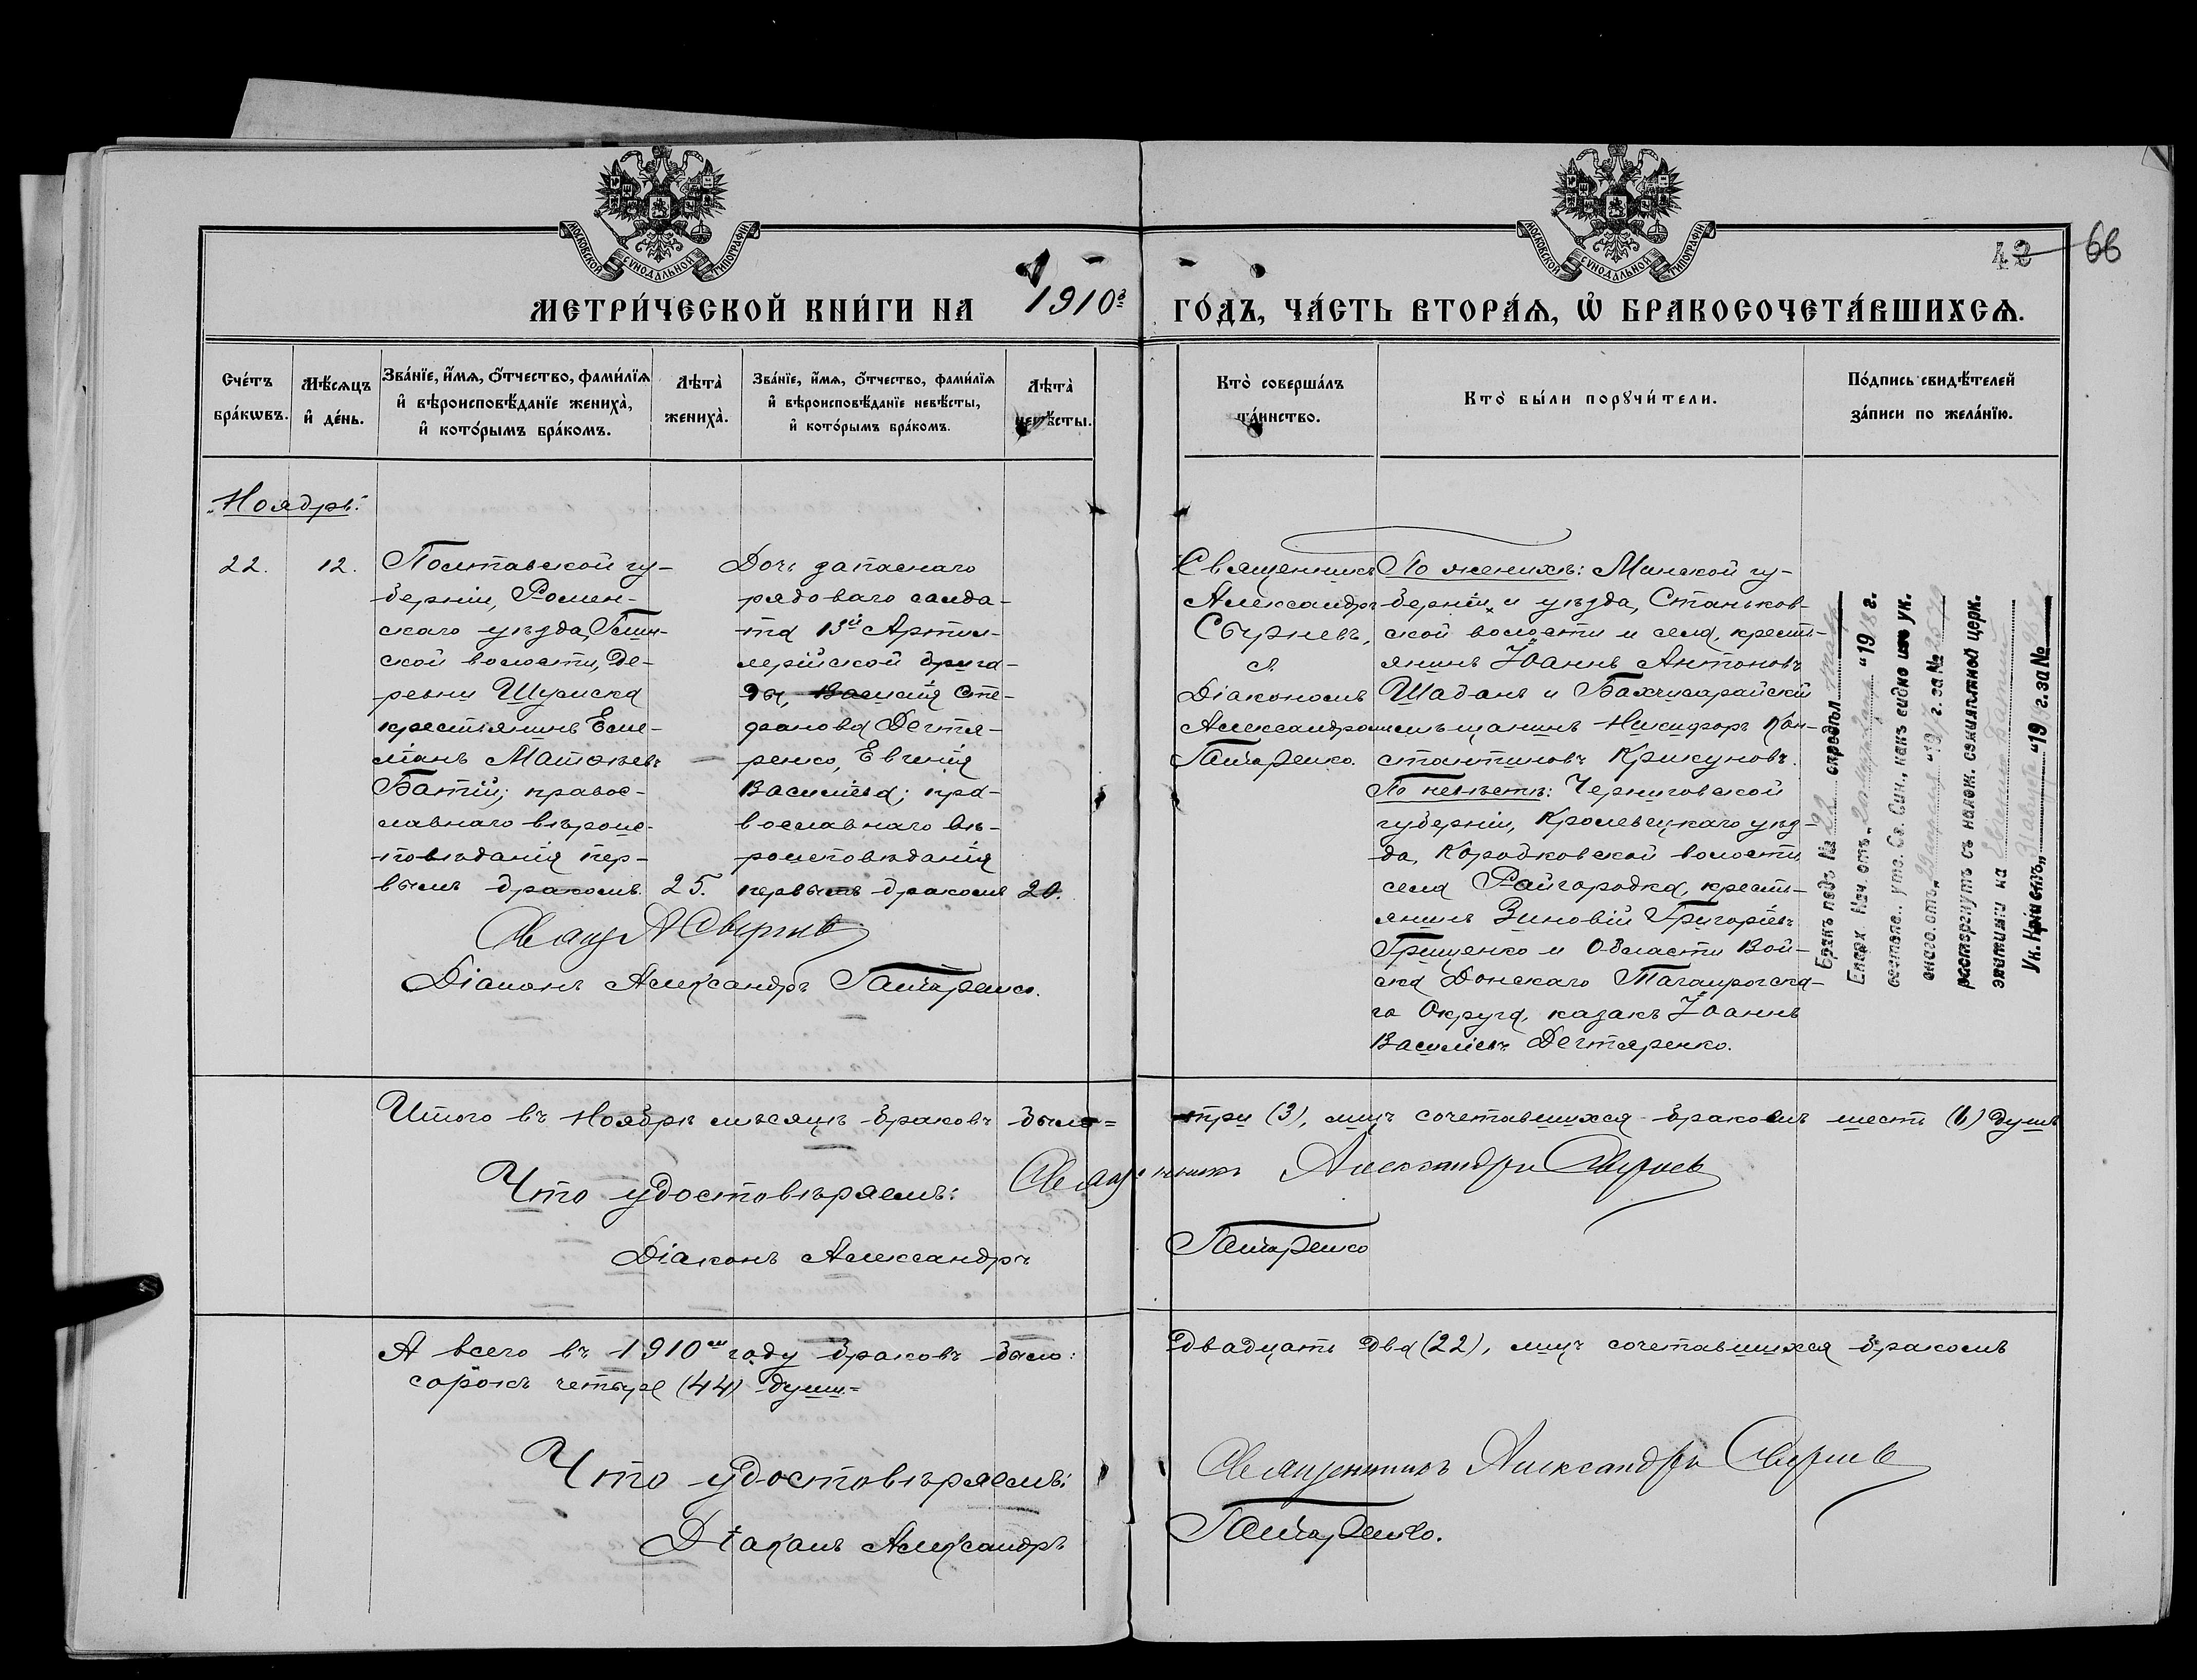 МОСКОВСКОЙ СѴНОДАЛЬНОЙ ТИПОГРАФІИ
МОСКОВСКОЙ СѴНОДАЛЬНОЙ ТИПОГРАФІИ
42 66
МЕТРИ́ЧЕСКОЙ КНИ́ГИ НА 1910г. ГО́ДЪ, ЧА́СТЬ ВТОРА́Ѧ, Ѽ БРАКОСОЧЕТА́ВШИХСѦ.
Сче́тъ
бра́кѡвъ.
Мѣ́сѧцъ
и҆ де́нь.
Зва́нїе, и҆́мѧ, ѻ҆́тчество, фами́лїѧ
и҆ вѣроисповѣ́данїе жениха̀,
и҆ кото́рымъ бра́комъ.
Лѣта̀
жениха̀.
Зва́нїе, и҆́мѧ, ѻ҆́тчество, фами́лїѧ
и҆ вѣроисповѣ́данїе невѣ́сты,
и҆ кото́рымъ бра́комъ.
Лѣта̀
невѣ́сты.
Кто̀ соверша́лъ
та́инство.
Кто̀ бы́ли порꙋчи́тели.
По́дпись свидѣ́телей
за́писи по жела́нїю.
Ноябрь:
22.
12.
Полтавской гу-
берніи, Ромен-
скаго уѣзда, Глин-
ской волости, де-
ревни Шумска
крестьянинъ Еме-
ліанъ Матѳѣевъ
Батій; правос-
лавнаго вѣроис-
повѣданія пер-
вымъ бракомъ.
25.
Дочь запаснаго
рядоваго салда-
та 13й Артил-
лерійской брига-
ды, Василія Сте-
фанова Дегтя-
ренко, Евгенія
Васильева; пра-
вославнаго вѣ-
роисповѣданія
первымъ бракомъ
20.
Священникъ
Александръ
Сбурневъ,
съ
Діакономъ
Александромъ
Гайтаренко.
По женихѣ: Минской гу-
берніи и уѣзда, Станьков-
ской волости и села, кресть-
янинъ Іоаннъ Антоновъ
Шаданъ и Бахчисарайскій
мѣщанинъ Никифоръ Кон-
стантиновъ Крикуновъ.
По невѣстѣ: Черниговской
губерніи, Кролевецкаго уѣз-
да, Коробковской волости
села Райгородка, кресть-
янинъ Зиновій Григорьевъ
Грищенко и Области Вой-
ска Донскаго Таганрогска-
го Округа, казакъ Іоаннъ
Васильевъ Дегтяренко.
Бракъ подъ № 22 опредѣл.
Епарх. Нач. отъ „ “ 1918 г.
состоло., утв. Св. Син., какъ видно изъ ук.
онаго, отъ „ “ 19 г. за №
расторгнутъ съ налож. семилѣтней церк.
эпитиміи на
Ук. Кр. „ “ 19 г. за №
Свящ А Сбурнев
Діаконъ Александръ Гайтаренко.
Итого въ Ноябрѣ мѣсяцѣ браковъ было= три (3), лицъ сочетавшихся бракомъ шесть (6) душъ
Что удостовѣряемъ: Священникъ Александръ Сбурнев
Діаконъ Александръ Гайтаренко
А всего въ 1910мъ году браковъ было: двадцать два (22), лицъ сочетавшихся бракомъ
сорокъ четыре (44) души=
Что удостовѣряемъ: Священникъ Александръ Сбурнев
Діаконъ Александръ Гайтаренко.